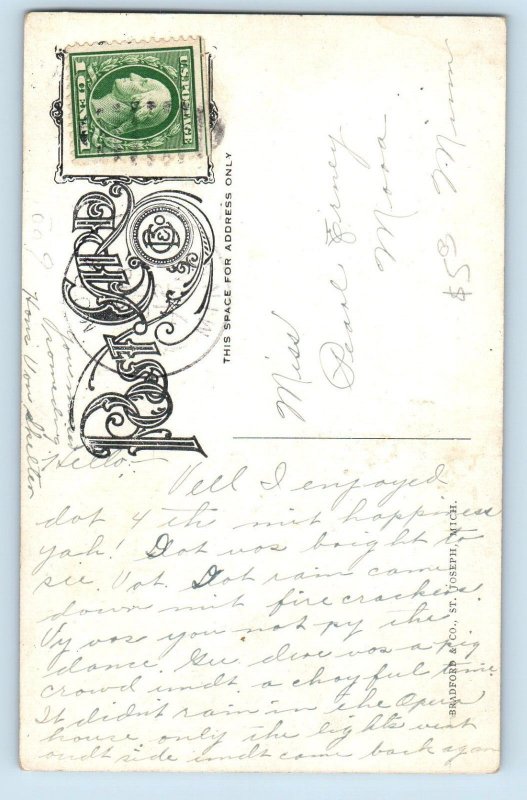 U.S. POSTAGE
1 CENT 1
POST CARD
THIS SPACE FOR ADDRESS ONLY
Miss
Pearl
Mora
Minn
$5
Hello.
Vell I enjoyed
dot 4 th mit happiness
yah! Dot vos bright to
see. Vot. Dot rain came
down mit fire crackers
Vy vos you not py the
dance. Gee dire vos a pig
crowd undt a choyful time
It didn't rain in the Opera
house only the lights vent
oudt side undt came back again
Hans Von
BRADFORD & CO., ST. JOSEPH, MICH.